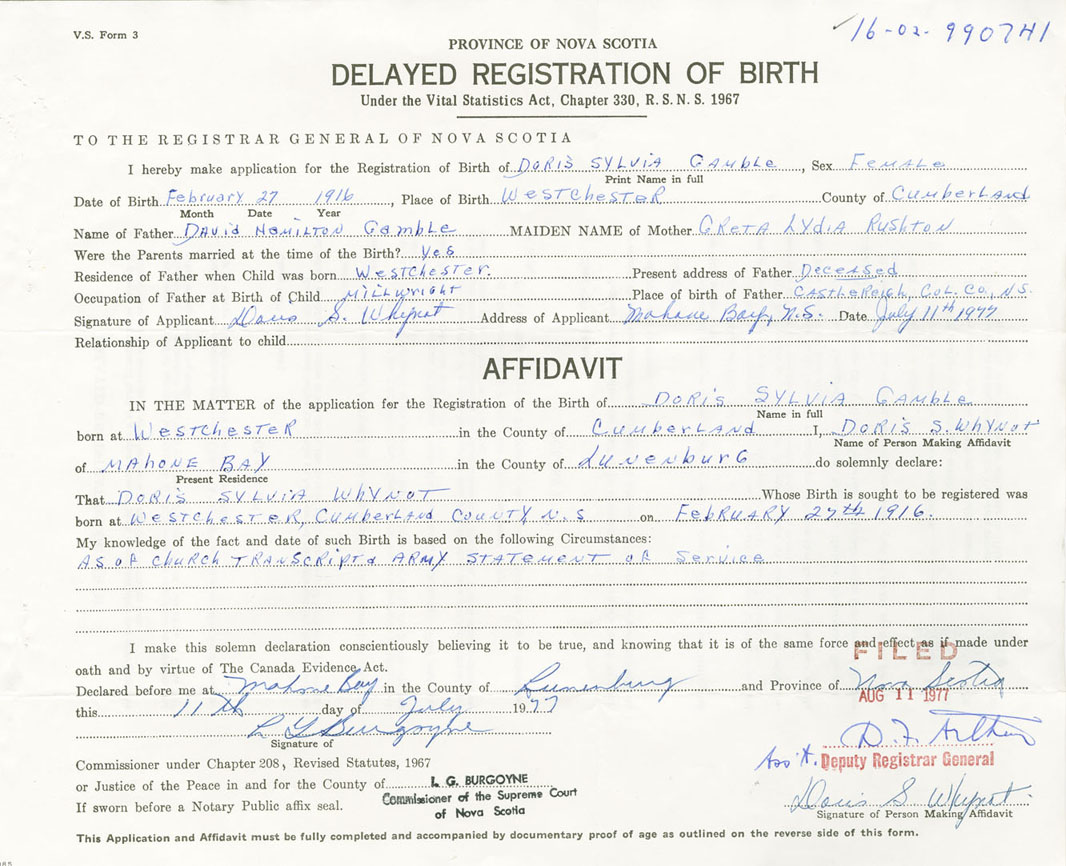 V.S. Form 3
16-02-990741
PROVINCE OF NOVA SCOTIA
DELAYED REGISTRATION OF BIRTH
Under the Vital Statistics Act, Chapter 330, R.S.N.S. 1967
TO THE REGISTRAR GENERAL OF NOVA SCOTIA
I hereby make application for the Registration of Birth of DORIS SYLVIA GAMBLE, Sex FEMALE
Print Name in full
Date of Birth February 27 1916, Place of Birth WESTCHESTER County of CUMBERLAND
Month Date Year
Name of Father DAVID HAMILTON GAMBLE MAIDEN NAME of Mother GRETA LYDIA RUSHTON
Were the Parents married at the time of the Birth? Yes
Residence of Father when Child was born WESTCHESTER. Present address of Father DECEASED
Occupation of Father at Birth of Child MILLWRIGHT Place of birth of Father CASTLEREIGH, COL. CO., N.S.
Signature of Applicant Doris S. Whynot Address of Applicant Mahone Bay, N.S. Date July 11th 1977
Relationship of Applicant to child
AFFIDAVIT
IN THE MATTER of the application for the Registration of the Birth of DORIS SYLVIA GAMBLE
Name in full
born at WESTCHESTER in the County of CUMBERLAND I, DORIS S. WHYNOT
Name of Person Making Affidavit
of MAHONE BAY in the County of LUNENBURG do solemnly declare:
Present Residence
That DORIS SYLVIA WHYNOT Whose Birth is sought to be registered was
born at WESTCHESTER, CUMBERLAND COUNTY N.S on FEBRUARY 27th 1916.
My knowledge of the fact and date of such Birth is based on the following Circumstances:
AS OF CHURCH TRANSCRIPT & ARMY STATEMENT OF SERVICE
I make this solemn declaration conscientiously believing it to be true, and knowing that it is of the same force and effect as if made under
FILED
oath and by virtue of The Canada Evidence Act.
Declared before me at Mahone Bay in the County of Lunenburg and Province of Nova Scotia
AUG 11 1977
this 11th day of July 1977
L G Burgoyne
Signature of
D. F. Arthur
Ass't. Deputy Registrar General
Commissioner under Chapter 208, Revised Statutes, 1967
or Justice of the Peace in and for the County of
L. G. BURGOYNE
Commissioner of the Supreme Court
of Nova Scotia
If sworn before a Notary Public affix seal.
Doris S Whynot
Signature of Person Making Affidavit
This Application and Affidavit must be fully completed and accompanied by documentary proof of age as outlined on the reverse side of this form.